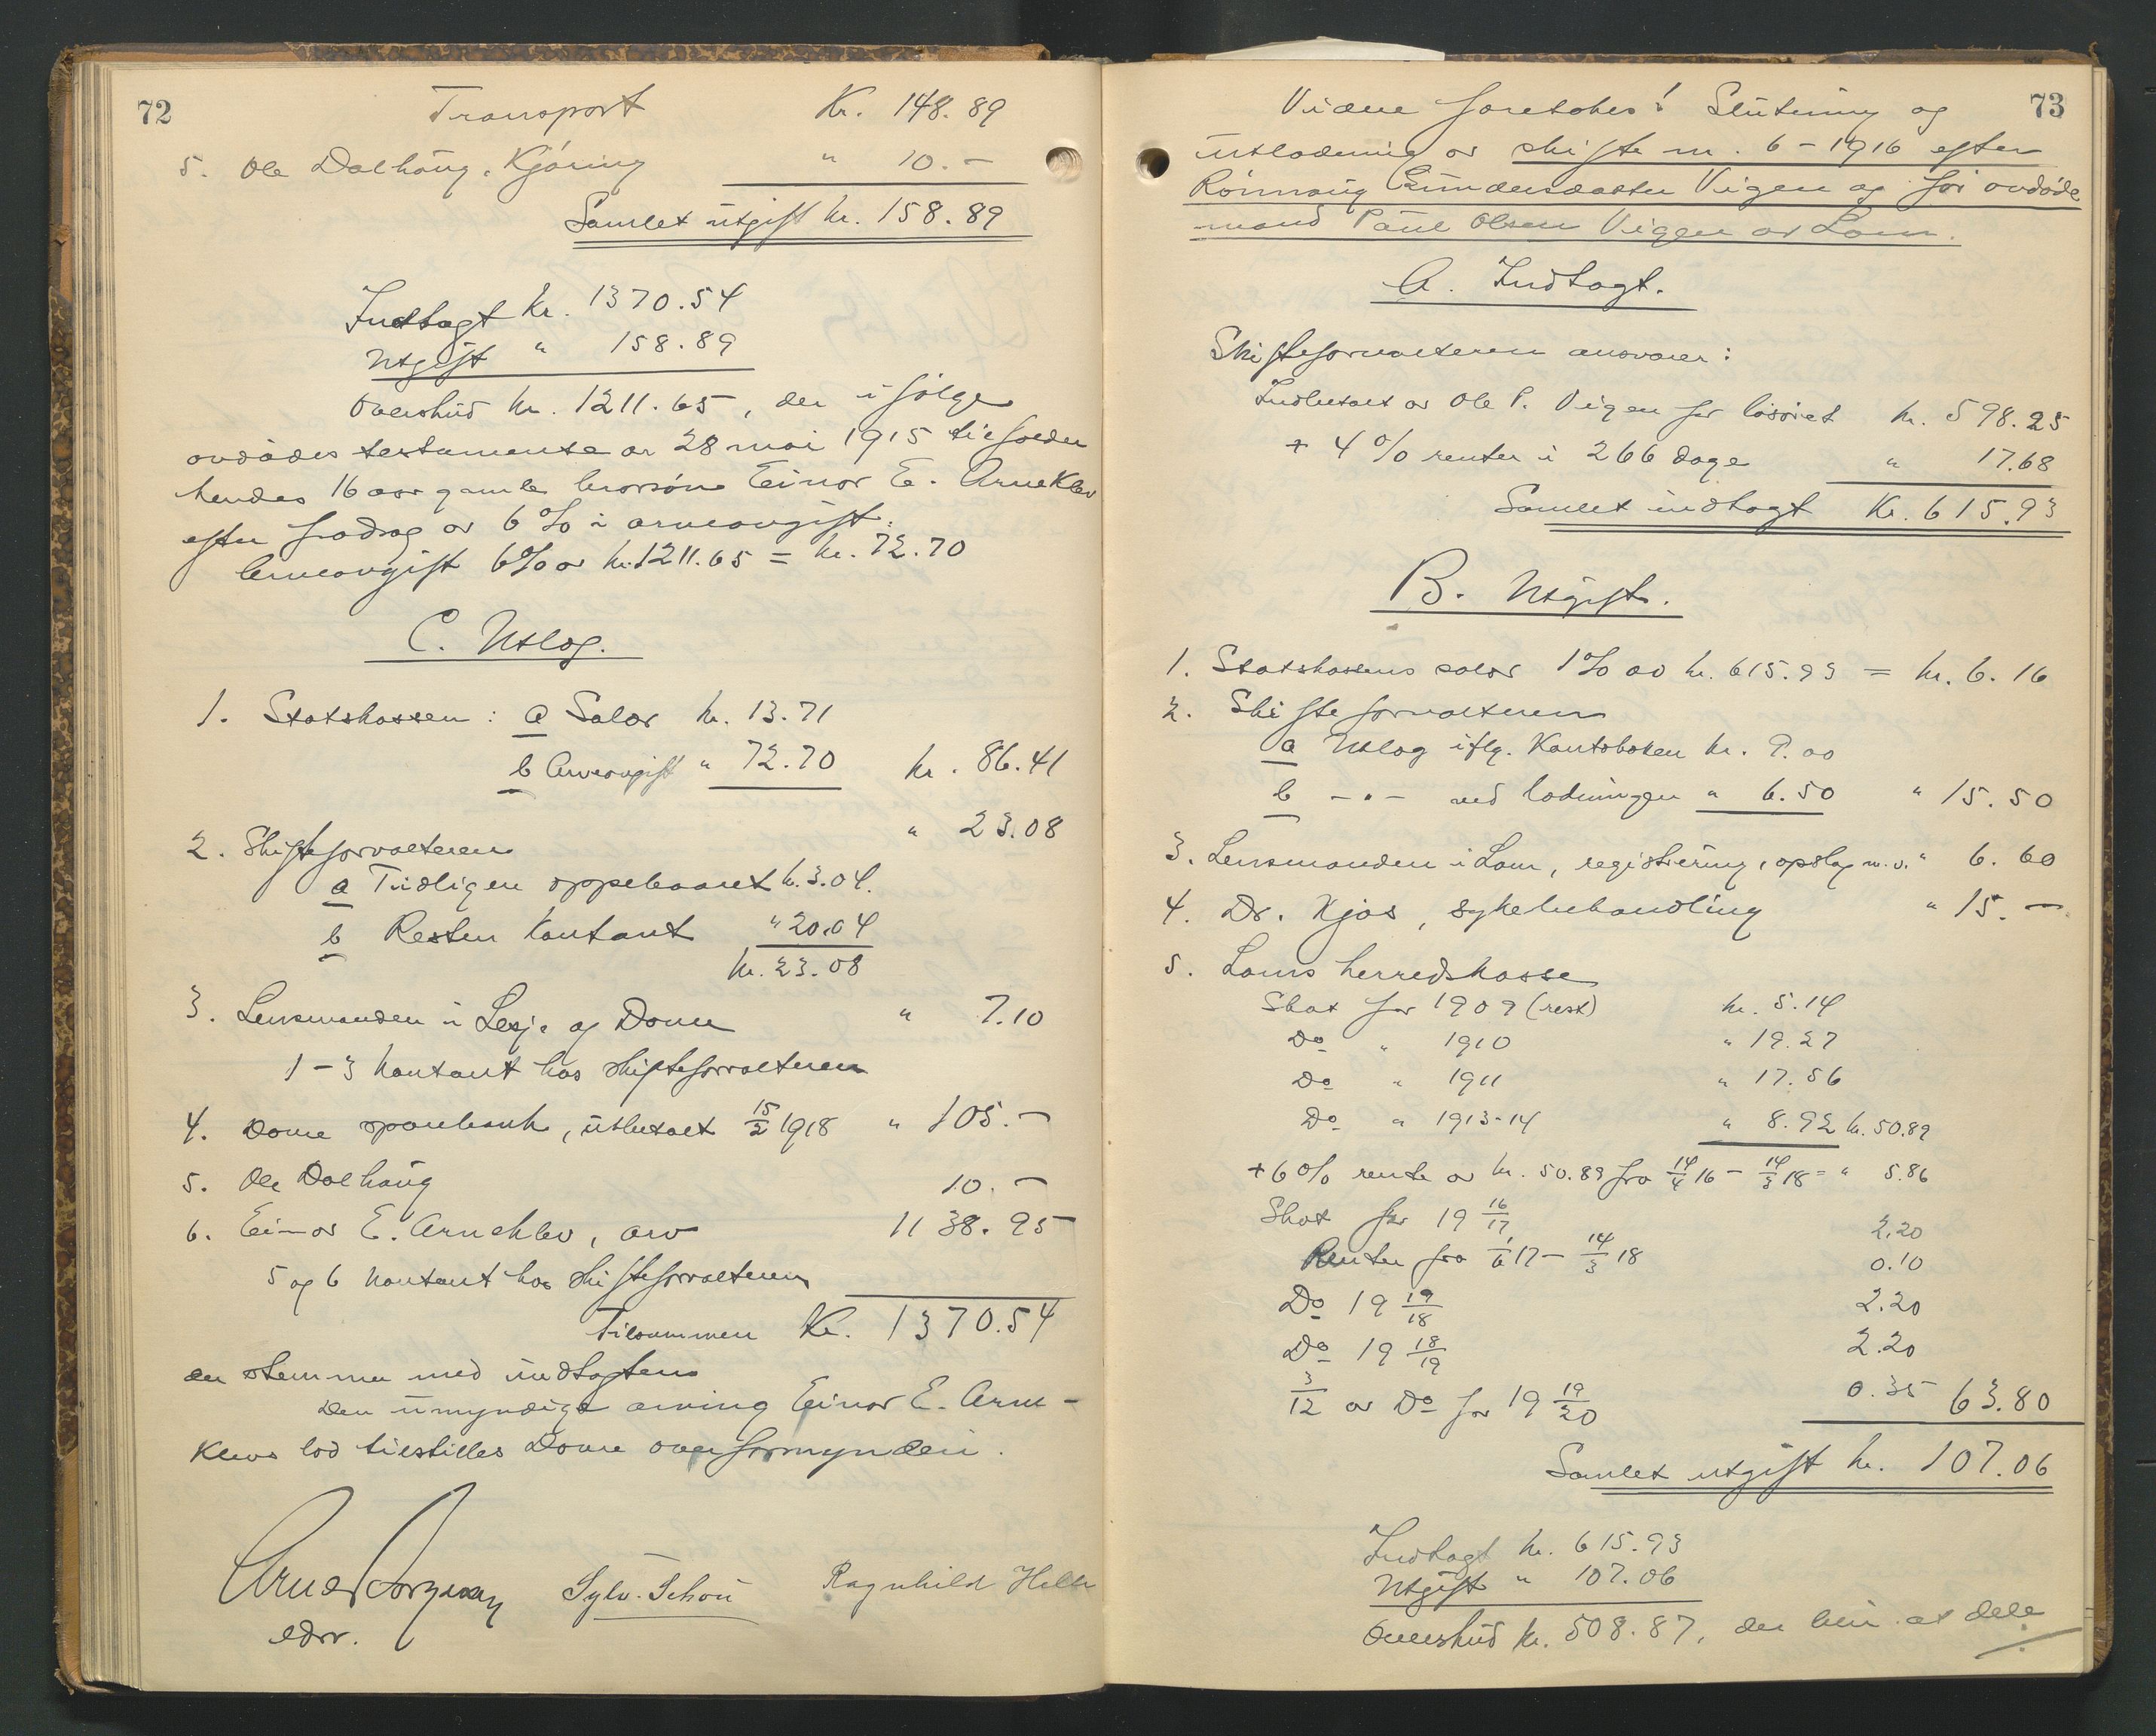 72
Transport Kr. 148.89
5. Ole Dalhaug, Kjøring " 10.-
Samlet utgift kr. 158.89
Indtægt kr. 1370.54
Utgift " 158.89
Overskud kr. 1211.65, der i følge
avdødes testamente av 28 mai 1915 tilfalder
hendes 16 aar gamle brorsøn Einar E. Arneklev
efter fradrag av 6% i arveavgift.
Arveavgift 6% av kr. 1211.65 = kr. 72.70
C. Utlæg.
1. Statskassen: a Salær kr. 13.71
b Arveavgift " 72.70 kr. 86.41
2. Skifteforvalteren " 23.08
a Tidligere oppebaaret kr. 3.04.
b Resten kontant " 20.04
kr. 23.08
3. Lensmanden i Lesje og Dovre " 7.10
1-3 kontant hos skifteforvalteren
4. Dovre sparebank, utbetalt 15/2 1918 " 105.-
5. Ole Dalhaug 10.-
6. Einar E. Arneklev, arv 1138.95
5 og 6 kontant hos skifteforvalteren
Tilsammen Kr. 1370.54
der stemmer med indtægten
Den umyndige arving Einar E. Arne-
klevs lod tilstilles Dovre overformynderi.
Sylv. Schou Ragnhild Helle
edsv.
73
Videre foretokes: Slutning og
utlodning av skifte nr. 6-1916 efter
Rønnaug Gundersdatter Vigen og før avdøde
mand Paul Olsen Viggen av Lom.
A. Indtægt.
Skifteforvalteren ansvarer:
Indbetalt av Ole P. Vigen for løsøret kr. 598.25
+ 4% renter i 266 dage " 17.68
Samlet indtægt Kr. 615.93
B. Utgift.
1. Statskassens salær 1% av kr. 615.93 = kr. 6.16
2. Skifteforvalteren
a Utlæg iflg. Kontoboken kr. 9.00
b -"- ved lodningen " 6.50 " 15.50
3. Lensmanden i Lom, registrering, opslag m.v. " 6.60
4. Dr. Kjos, sykebehandling " 15.-
5. Loms herredskasse
Skat for 1909 (rest) kr. 5.14
Do " 1910 " 19.27
Do " 1911 " 17.56
Do " 1913-14 " 8.92 kr. 50.89
+ 6% rente av kr. 50.89 fra 14/4 16 - 14/3 18 = " 5.86
Skat for 19 16/17 2.20
Renter fra 1/6 17 - 14/3 18 0.10
Do 19 19/18 2.20
Do 19 18/19 2.20
3/12 av Do for 19 19/20 0.35 63.80
Samlet utgift kr. 107.06
Indtægt kr. 615.93
Utgift " 107.06
Overskud kr. 508.87, der blir at dele